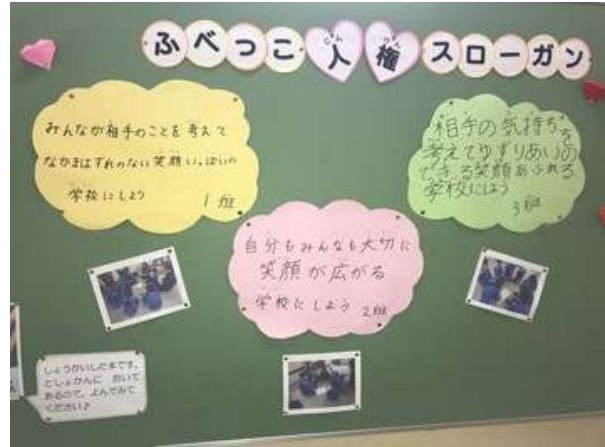 ふべっこ人権スローガン
みんなが相手のことを考えて
なかまはずれのない笑顔いっぱいの
学校にしよう 1班
相手の気持ちを
考えてゆずりあいの
できる笑顔あふれる
学校にしよう
3班
自分もみんなも大切に
笑顔が広がる
学校にしよう 2班
しょうかいした本です。
としょかんに おいて
あるので、よんでみて
ください♪